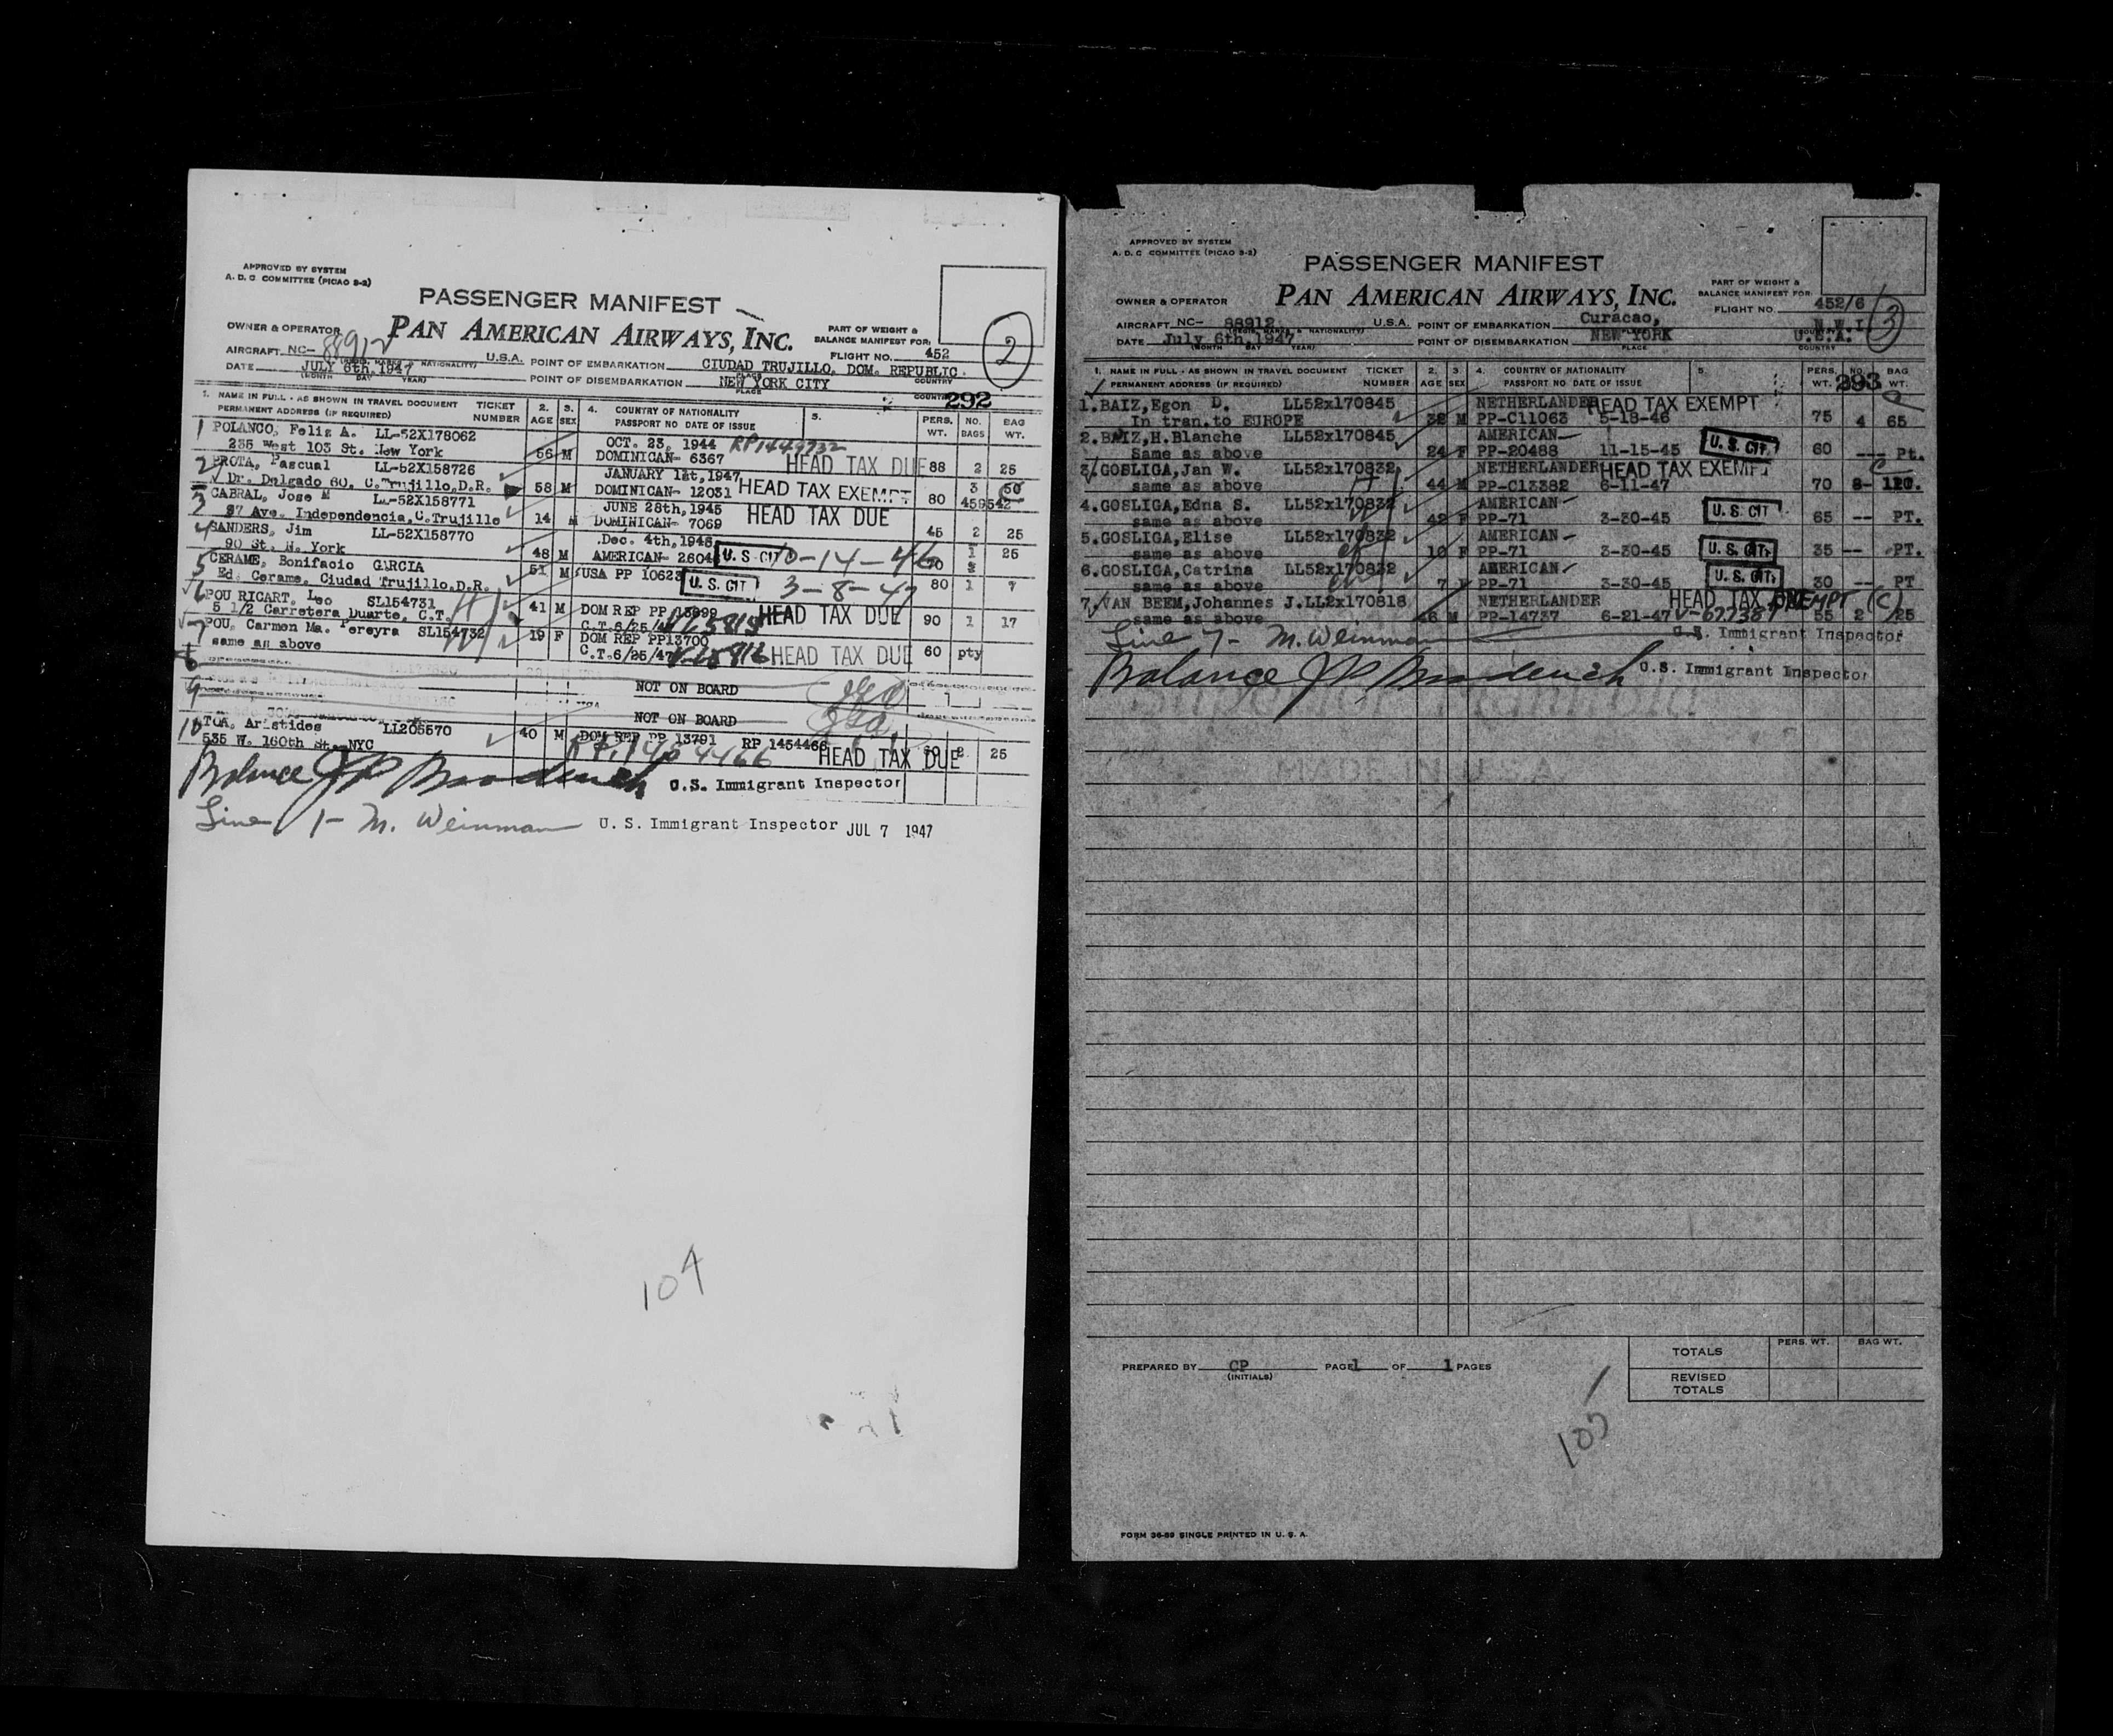 APPROVED BY SYSTEM
A. D. C COMMITTEE (PICAO 3-2)
PASSENGER MANIFEST
OWNER & OPERATOR PAN AMERICAN AIRWAYS, INC.
PART OF WEIGHT &
BALANCE MANIFEST FOR:
FLIGHT NO. 452
2
AIRCRAFT NC- 88912 (REGIS. MARKS & NATIONALITY) U.S.A. POINT OF EMBARKATION CIUDAD TRUJILLO, DOM. REPUBLIC.
PLACE COUNTRY
DATE JULY 6th, 1947 POINT OF DISEMBARKATION NEW YORK CITY
(MONTH DAY YEAR) PLACE COUNTRY 292
1. NAME IN FULL - AS SHOWN IN TRAVEL DOCUMENT TICKET 2. 3. 4. COUNTRY OF NATIONALITY 5. PERS. NO. BAG
PERMANENT ADDRESS (IF REQUIRED) NUMBER AGE SEX PASSPORT NO DATE OF ISSUE WT. BAGS WT.
1 POLANCO, Feliz A. LL-52X178062 OCT. 23, 1944 RP1449732
235 West 103 St. New York 56 M DOMINICAN- 6367 HEAD TAX DUE 88 2 25
2 PROTA, Pascual LL-52X158726 JANUARY 1st, 1947
Dr. Delgado 60. C.Trujillo,D.R. 58 M DOMINICAN- 12031 HEAD TAX EXEMPT 80 3 50
459542
3 CABRAL, Jose M LL-52X158771 JUNE 28th, 1945
87 Ave. Independencia, C.Trujillo 14 M DOMINICAN- 7069 HEAD TAX DUE 45 2 25
4 SANDERS, Jim LL-52X158770 Dec. 4th, 1946
90 St. N. York 48 M AMERICAN- 2604 U. S. CIT 10-14-46 1 25
5 CERAME, Bonifacio GARCIA
Ed. Cerame, Ciudad Trujillo,D.R. 51 M USA PP 10623 U. S. CIT 3-8-47 80 1 7
6 POU RICART, Leo SL154731
5 1/2 Carretera Duarte, C.T. 41 M DOM REP PP 13699 HEAD TAX DUE 90 1 17
C.T.6/25/47
7 POU, Carmen Ma. Pereyra SL154732 19 F DOM REP PP13700
same as above C.T.6/25/47 HEAD TAX DUE 60 pty
8
NOT ON BOARD
9
NOT ON BOARD
10 TOA, Aristides LL205570 40 M DOM REP PP 13791 RP 1454466
535 W. 160th St. NYC RP.1454466 HEAD TAX DUE 2 25
Balance U.S. Immigrant Inspector
Line 1- M. Weinman U. S. Immigrant Inspector JUL 7 1947
104
APPROVED BY SYSTEM
A. D. C COMMITTEE (PICAO 3-2)
PASSENGER MANIFEST
OWNER & OPERATOR PAN AMERICAN AIRWAYS, INC.
PART OF WEIGHT &
BALANCE MANIFEST FOR:
FLIGHT NO. 452/6
3
AIRCRAFT NC- 88912 (REGIS. MARKS & NATIONALITY) U.S.A. POINT OF EMBARKATION Curacao, N.W.I.
DATE July 6th,1947 POINT OF DISEMBARKATION NEW YORK U.S.A.
(MONTH DAY YEAR) PLACE COUNTRY
1. NAME IN FULL - AS SHOWN IN TRAVEL DOCUMENT TICKET 2. 3. 4. COUNTRY OF NATIONALITY 5. PERS. NO. BAG
PERMANENT ADDRESS (IF REQUIRED) NUMBER AGE SEX PASSPORT NO DATE OF ISSUE WT. 293 WT.
1.BAIZ,Egon D. LL52x170845 NETHERLANDER HEAD TAX EXEMPT
In tran.to EUROPE 38 M PP-C11063 5-18-46 75 4 65
2.BAIZ,H.Blanche LL52x170845 AMERICAN
Same as above 24 F PP-20488 11-15-45 U. S. CIT. 60 --- Pt.
3.GOSLIGA,Jan W. LL52x170832 NETHERLANDER HEAD TAX EXEMPT
same as above 44 M PP-C13382 6-11-47 70 8- 120.
4.GOSLIGA,Edna S. LL52x170832 AMERICAN
same as above 42 F PP-71 3-30-45 U. S. CIT 65 -- PT.
5.GOSLIGA,Elise LL52x170832 AMERICAN
same as above 10 F PP-71 3-30-45 U. S. CIT. 35 -- PT.
6.GOSLIGA,Catrina LL52x170832 AMERICAN
same as above 7 F PP-71 3-30-45 U. S. CIT. 30 -- PT
7.VAN BEEM,Johannes J.LL2x170818 NETHERLANDER HEAD TAX EXEMPT (C)
same as above 46 M PP-14737 6-21-47 V-677387 55 2 25
Line 7- M. Weinman U.S. Immigrant Inspector
Balance U.S. Immigrant Inspector
MADE IN U.S.A.
PREPARED BY CP PAGE 1 OF 1 PAGES
(INITIALS)
PERS. WT. BAG WT.
TOTALS
REVISED
TOTALS
105
FORM 36-89 SINGLE PRINTED IN U. S. A.